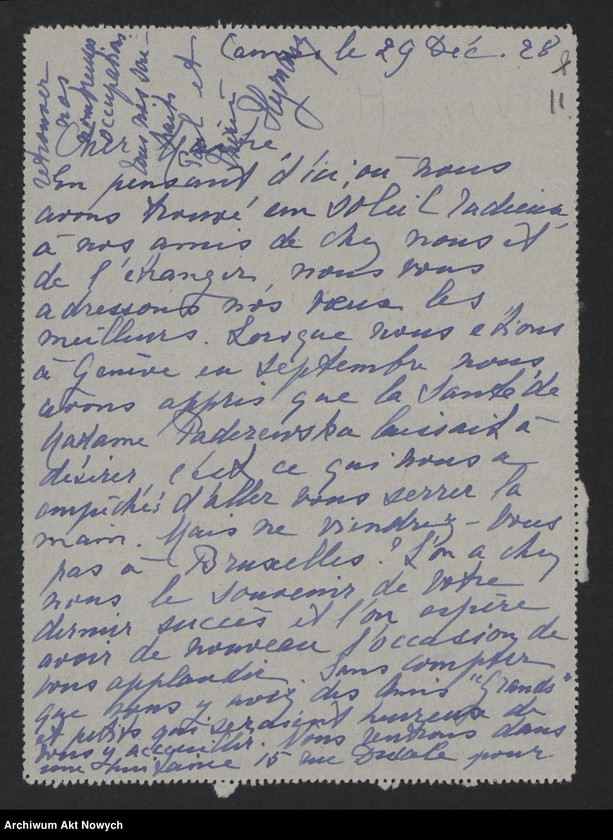 Cannes, le 29 Déc. 28
11
Cher Maître
En pensant d'ici, où nous
avons trouvé un soleil radieux
à nos amis de chez nous et
de l'étranger, nous vous
adressons nos vœux les
meilleurs. Lorsque nous étions
à Genève en septembre nous
avons appris que la santé de
Madame Paderewska laissait à
désirer, c'est ce qui nous a
empêchés d'aller vous serrer la
main. Mais ne viendrez-vous
pas à Bruxelles? L'on a chez
nous le souvenir de votre
dernier succès et l'on espère
avoir de nouveau l'occasion de
vous applaudir. Sans compter
que vous y avez des amis "Grands"
et petits qui seraient heureux de
vous y accueillir. Nous rentrons dans
une huitaine 15 rue Ducale pour
retrouver
nos
nombreuses
occupations
Tous nos souhaits
Paul et
Marie
Hymans
Archiwum Akt Nowych